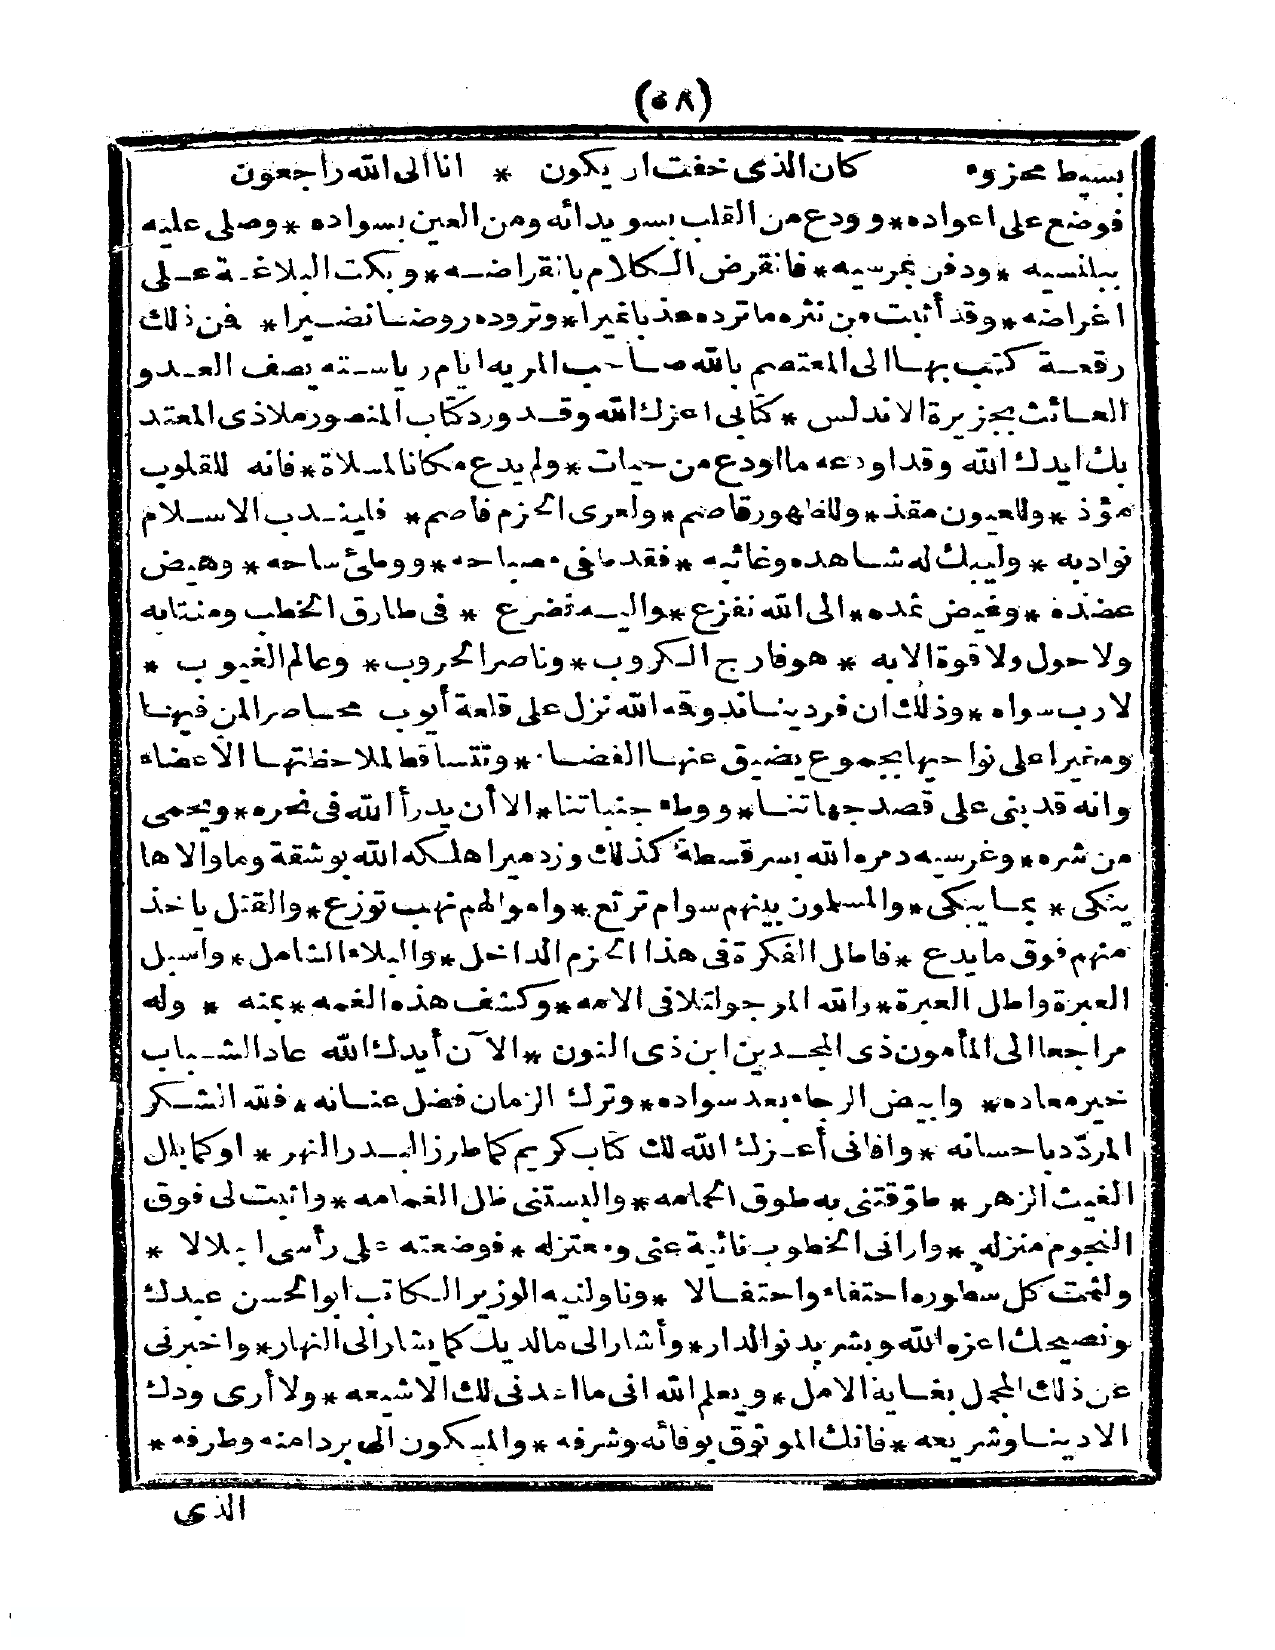 (٥٨)
بسيط محزوه كان الذى خفت ان يكون * انا الى الله راجعون
فوضع على اعواده * وودع من القلب بسويدائه ومن العين بسواده * وصلى عليه
ببلنسيه * ودفن بمرسيه * فانقرض الكلام بانقراضه * وبكت البلاغة على
اغراضه * وقد أثبت من نثره ما ترده عذبا نميرا * وتروده روضا نضيرا * فمن ذلك
رقعة كتب بها الى المعتصم بالله صاحب المريه ايام رياسته يصف العدو
العائث بجزيرة الاندلس * كتابى اعزك الله وقد ورد كتاب المنصور ملاذى المعتد
بك ايدك الله وقد اودعه ما اودع من حيات * ولم يدع مكانا لمسلاة * فانه للقلوب
مؤذ * وللعيون مقذ * وللظهور قاصم * ولعرى الحزم فاصم * فليندب الاسلام
نواديه * وليبك له شاهده وغائبه * فقد طفى مصباحه * ووطئ ساحه * وهيض
عضده * وغيض ثمده * الى الله نفزع * واليه نضرع * فى طارق الخطب ومنتابه
ولا حول ولا قوة الا به * هو فارج الكروب * وناصر الحروب * وعالم الغيوب *
لا رب سواه * وذلك ان فرديناند وقه الله نزل على قلعة أيوب محاصرا لمن فيها
ومغيرا على نواحيها بجموع يضيق عنها الفضاء * وتتساقط لملاحظتها الاعضاء
وانه قد بنى على قصد جهاتنا * ووطء جنباتنا * الا أن يدرأ الله فى نحره * ويحمى
من شره * وغرسيه دمره الله بسرقسطة كذلك وزدميرا هلكه الله بوشقة وما والاها
ينكى * بما يبكى * والمسلمون بينهم سوام ترتع * واموالهم نهب توزع * والقتل ياخذ
منهم فوق ما يدع * فاطل الفكرة فى هذا الحزم الداخل * والبلاء الشامل * واسبل
العبرة واطل العبرة * والله المرجو لتلافى الامه * وكشف هذه الغمه * بمنه * وله
مراجعا الى المأمون ذى المجدين ابن ذى النون * الآن أيدك الله عاد الشباب
خير معاده * وابيض الرجاء بعد سواده * وترك الزمان فضل عنانه * فلله الشكر
المردّد باحسانه * وافانى أعزك الله لك كتاب كريم كما طرز البدر النهر * او كما بلل
الغيث الزهر * طوّقتنى به طوق الحمامه * والبستنى ظل الغمامه * واثبت لى فوق
النجوم منزله * وارانى الخطوب نائية عنى ومعتزله * فوضعته على رأسى اجلالا *
ولثمت كل سطوره احتفاء واحتفالا * وناولنيه الوزير الكاتب ابو الحسن عبدك
ونصيحك اعزه الله وبشر يدنو الدار * وأشار الى ما لديك كما يشار الى النهار * واخبرنى
عن ذلك المجمل بغاية الامل * ويعلم الله انى ما اعدنى لك الاشيعه * ولا أرى ودك
الا دينا وشريعه * فانك الموثوق بوفائه وشرفه * والمسكون الى برد امنه وطرفه *
الذى